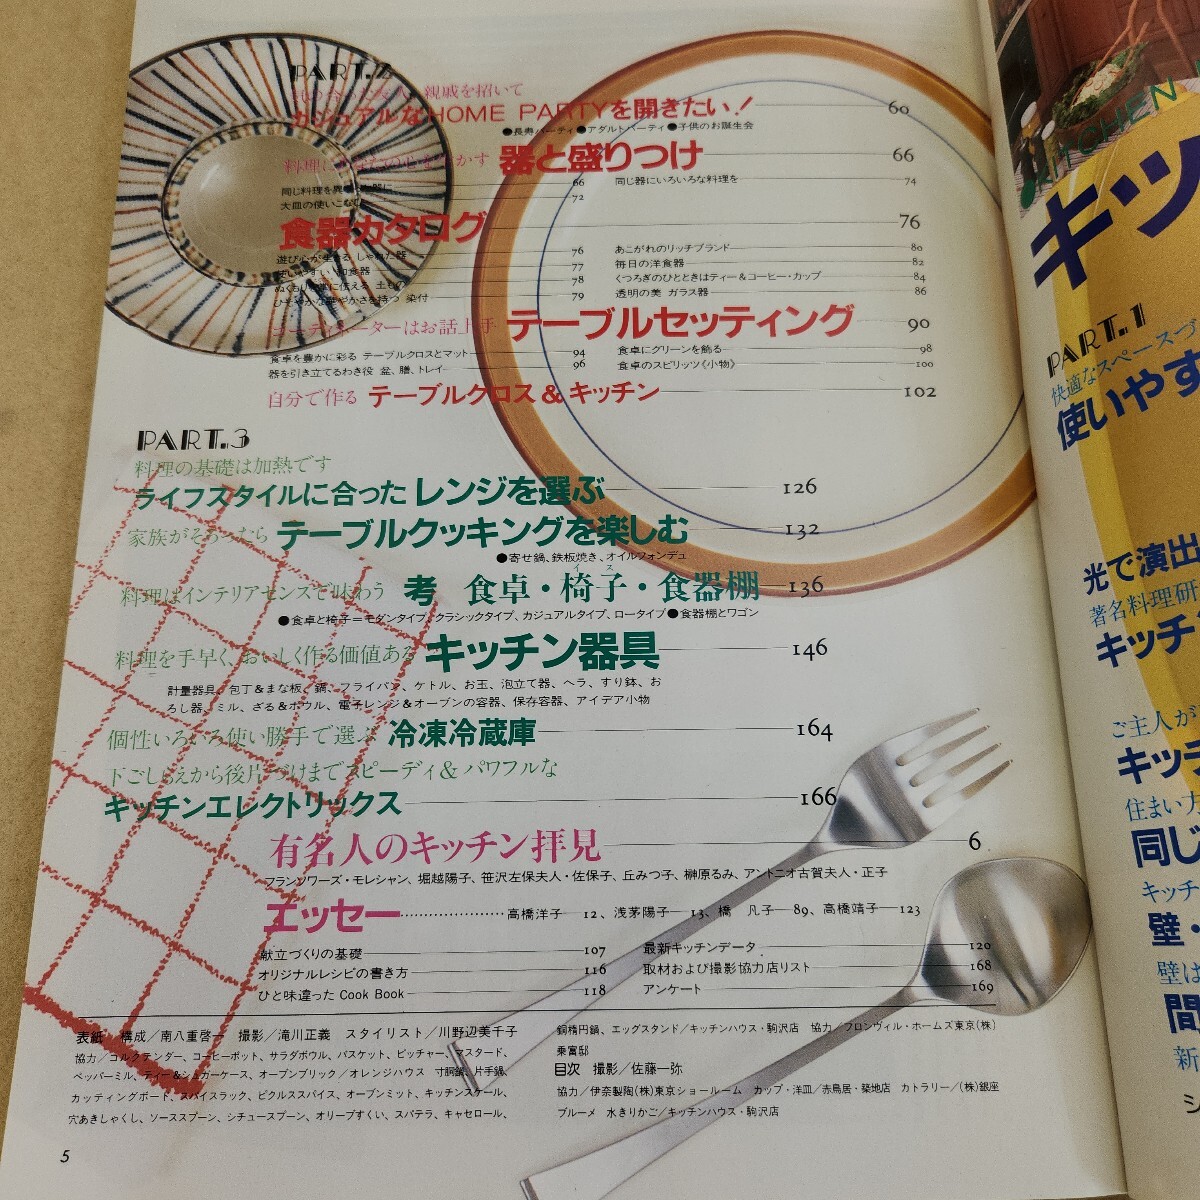 PART.2
親戚を招いて
カジュアルなHOME PARTYを開きたい! 60
●長寿パーティ●アダルトパーティ●子供のお誕生会
器と盛りつけ 66
同じ料理を 66
大皿の使いこなし 72
同じ器にいろいろな料理を 74
食器カタログ 76
遊び心が生きる しゃれた器 76
使いやすい 和食器 77
78
ひそやかな華やかさを持つ 染付 79
あこがれのリッチブランド 80
毎日の洋食器 82
くつろぎのひとときはティー&コーヒー・カップ 84
透明の美 ガラス器 86
コーディネーターはお話上手 テーブルセッティング 90
食卓を豊かに彩る テーブルクロスとマット 94
器を引き立てるわき役 盆、膳、トレイ 96
食卓にグリーンを飾る 98
食卓のスピリッツ《小物》 100
自分で作る テーブルクロス&キッチン 102
PART.3
料理の基礎は加熱です
ライフスタイルに合ったレンジを選ぶ 126
家族がそろったら テーブルクッキングを楽しむ 132
●寄せ鍋、鉄板焼き、オイルフォンデュ
料理はインテリアセンスで味わう 考 食卓・椅子・食器棚 136
イス
●食卓と椅子=モダンタイプ、クラシックタイプ、カジュアルタイプ、ロータイプ●食器棚とワゴン
料理を手早く、おいしく作る価値ある キッチン器具 146
計量器具、包丁&まな板、鍋、フライパン、ケトル、お玉、泡立て器、ヘラ、すり鉢、お
ろし器、ミル、ざる&ボウル、電子レンジ&オーブンの容器、保存容器、アイデア小物
個性いろいろ使い勝手で選ぶ 冷凍冷蔵庫 164
下ごしらえから後片づけまでスピーディ&パワフルな
キッチンエレクトリックス 166
有名人のキッチン拝見 6
フランソワーズ・モレシャン、堀越陽子、笹沢左保夫人・佐保子、丘みつ子、榊原るみ、アントニオ古賀夫人・正子
エッセー 高橋洋子 12、浅茅陽子 13、橋 凡子 89、高橋靖子 123
献立づくりの基礎 107
オリジナルレシピの書き方 116
ひと味違った Cook Book 118
最新キッチンデータ 120
取材および撮影協力店リスト 168
アンケート 169
表紙 構成/南八重啓一 撮影/滝川正義 スタイリスト/川野辺美千子
協力/コルクテンダー、コーヒーポット、サラダボウル、バスケット、ピッチャー、マスタード、
ペッパーミル、ティー&シュガーケース、オーブンブリック/オレンジハウス 寸胴鍋、片手鍋、
カッティングボート、スパイスラック、ピクルススパイス、オーブンミット、キッチンスケール、
穴あきしゃくし、ソーススプーン、シチュースプーン、オリーブすくい、スパテラ、キャセロール、
銅楕円鍋、エッグスタンド/キッチンハウス・駒沢店 協力/フロンヴィル・ホームズ東京(株)
乗富邸
目次 撮影/佐藤一弥
協力/伊奈製陶(株)東京ショールーム カップ・洋皿/赤鳥居・築地店 カトラリー/(株)銀座
ブルーメ 水きりかご/キッチンハウス・駒沢店
5
KITCHEN
キッ
PART.1
快適なスペースづ
使いやす
光で演出
著名料理研
キッチ
ご主人が
キッチ
住まい方
同じ
キッチ
壁・
壁は
間
新
シ